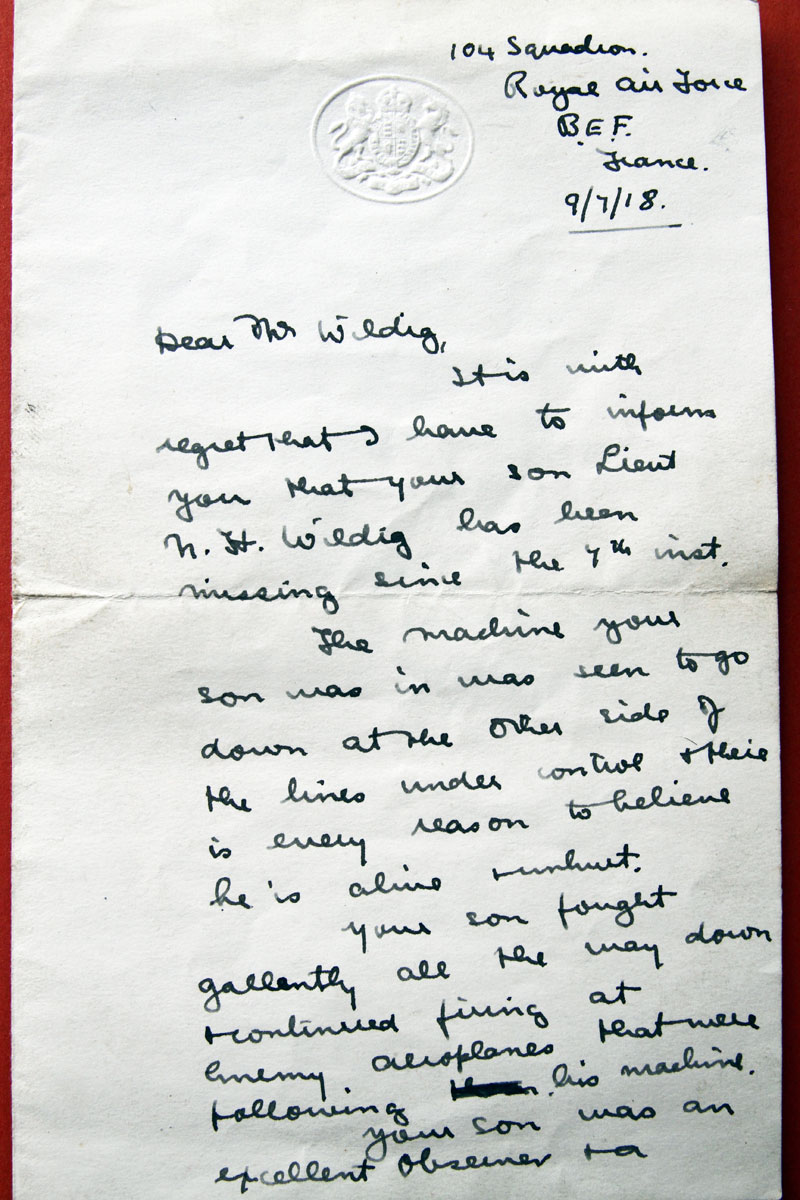 104 Squadron.
Royal Air Force
B.E.F.
France.
9/7/18.
Dear Mr Wildig,
It is with
regret that I have to inform
you that your son Lieut
N. H. Wildig has been
missing since the 7th inst.
The machine your
son was in was seen to go
down at the other side of
the lines under control & there
is every reason to believe
he is alive & unhurt.
Your son fought
gallently all the way down
& continued firing at
Enemy aeroplanes that were
following his machine.
Your son was an
excellent Observer & a